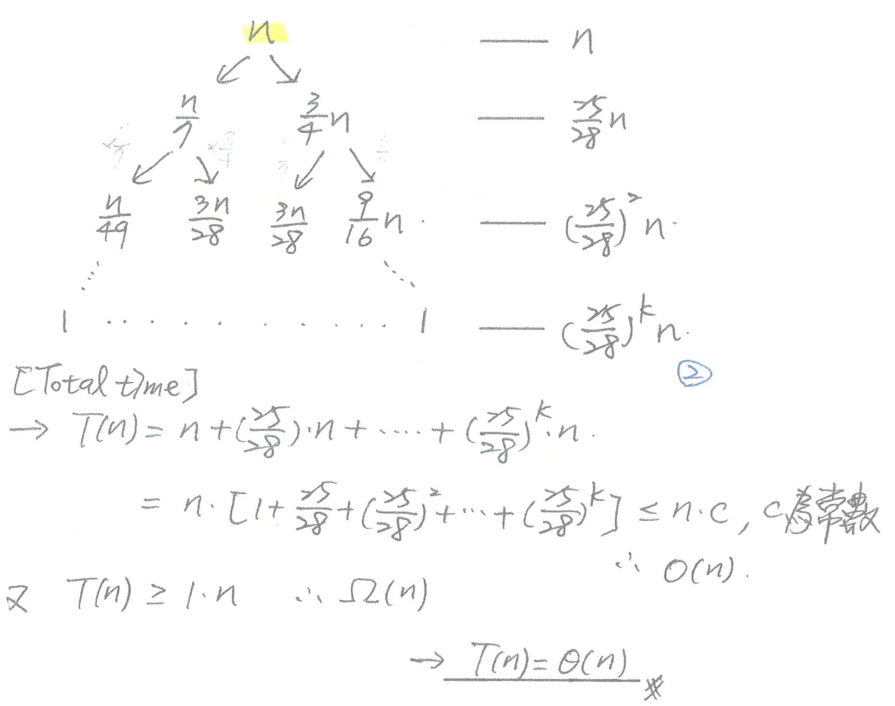 n —— n
n/7 3/4 n —— 25/28 n
n/49 3n/28 3n/28 9/16 n. —— (25/28)² n.
1 ........... 1 —— (25/28)^k n.
②
[Total time]
→ T(n) = n + (25/28)·n + ····· + (25/28)^k·n.
= n·[1 + 25/28 + (25/28)² + ··· + (25/28)^k] ≤ n·c, c為常數
∴ O(n).
又 T(n) ≥ 1·n ∴ Ω(n)
→ T(n) = Θ(n) ※